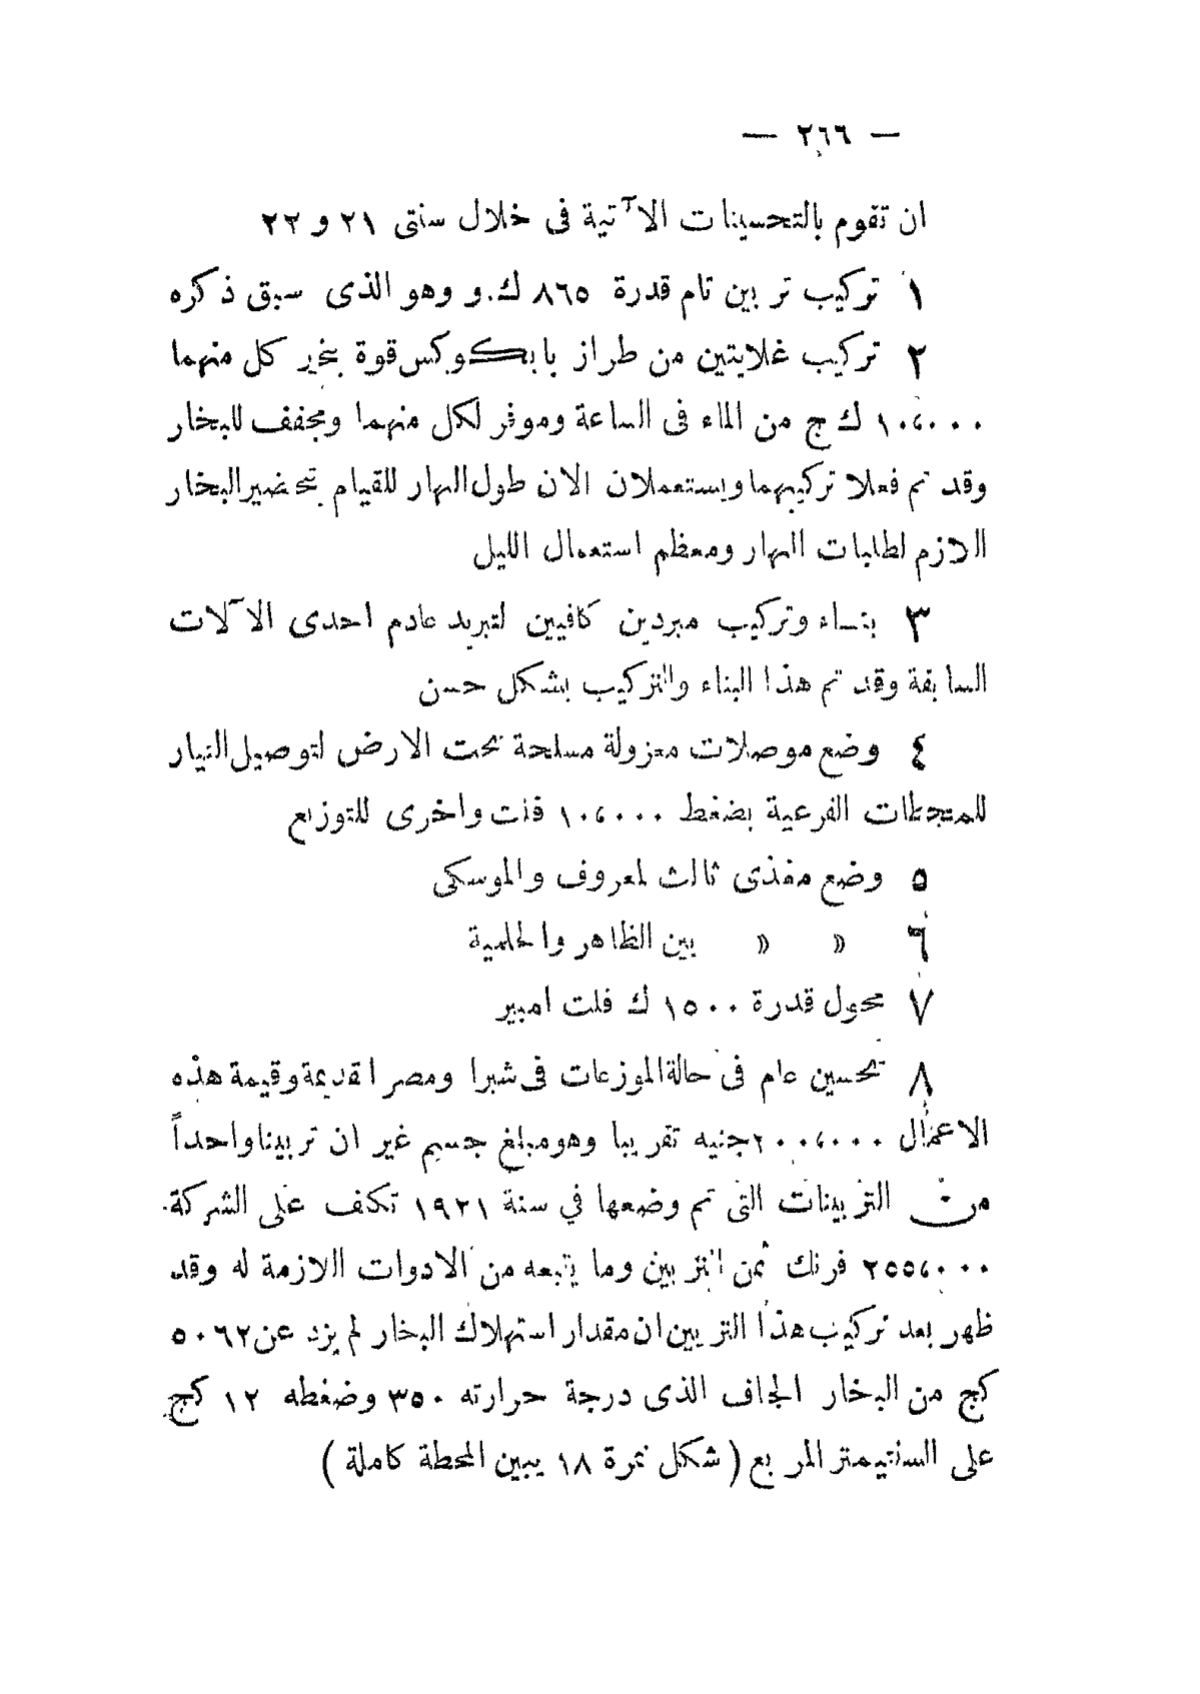 — ٢٦٦ —
ان تقوم بالتحسينات الآتية فى خلال سنتى ٢١ و ٢٢
١ تركيب تربين تام قدرة ٨٦٥ ك.و وهو الذى سبق ذكره
٢ تركيب غلايتين من طراز بابكوكس قوة بخر كل منهما
١٠٬٠٠٠ ك ج من الماء فى الساعة وموفر لكل منهما ومجفف للبخار
وقد تم فعلا تركيبهما ويستعملان الان طول النهار للقيام بتحضير البخار
اللازم لطلبات النهار ومعظم استعمال الليل
٣ بناء وتركيب مبردين كافيين لتبريد عادم احدى الآلات
السابقة وقد تم هذا البناء والتركيب بشكل حسن
٤ وضع موصلات معزولة مسلحة تحت الارض لتوصيل التيار
للمحطات الفرعية بضغط ١٠٬٠٠٠ فلت واخرى للتوزيع
٥ وضع مغذى ثالث لمعروف والموسكى
٦ » » بين الظاهر والحلمية
٧ محول قدرة ١٥٠٠ ك فلت امبير
٨ تحسين عام فى حالة الموزعات فى شبرا ومصر القديمة وقيمة هذه
الاعمال ٢٠٠٬٠٠٠ جنيه تقريبا وهو مبلغ جسيم غير ان تربينا واحداً
من التربينات التى تم وضعها في سنة ١٩٢١ تكلف على الشركة
٢٥٥٬٠٠٠ فرنك ثمن التربين وما يتبعه من الادوات اللازمة له وقد
ظهر بعد تركيب هذا التربين ان مقدار استهلاك البخار لم يزد عن ٥٠٦٢
كج من البخار الجاف الذى درجة حرارته ٣٥٠ وضغطه ١٢ كج
على السنتيمتر المربع ( شكل نمرة ١٨ يبين المحطة كاملة )